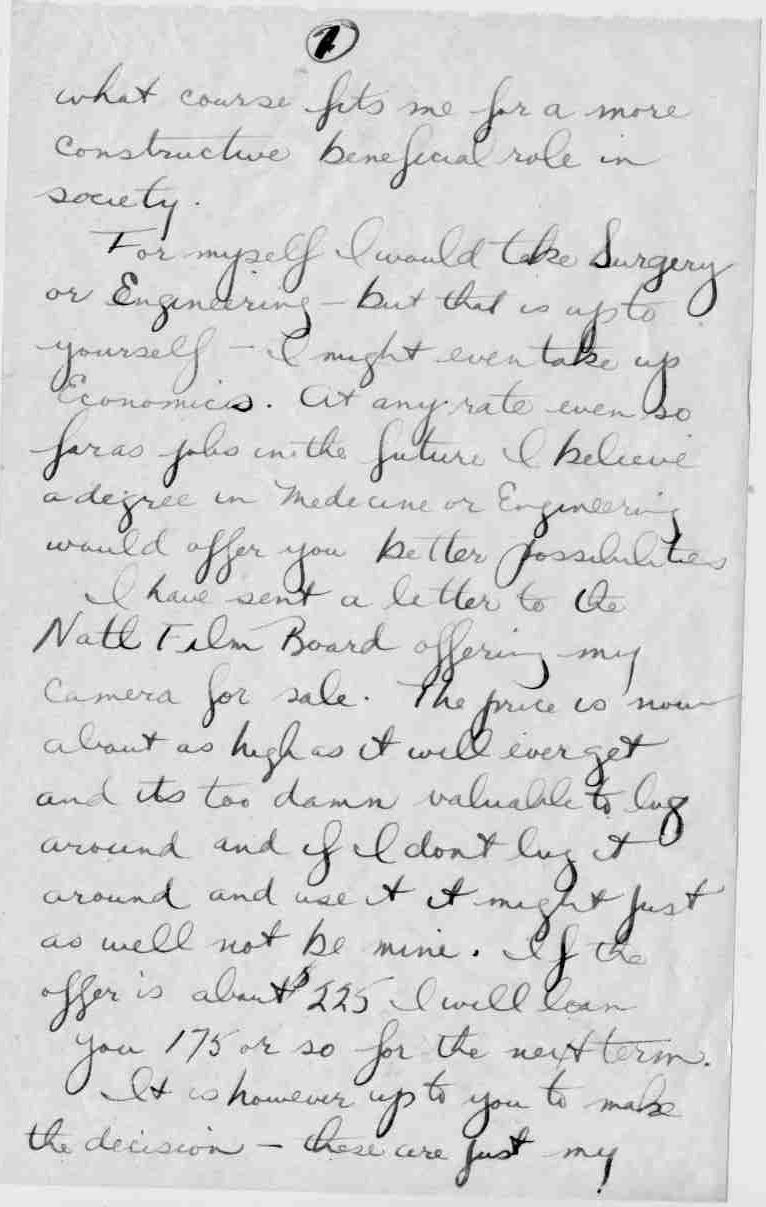 what course fits me for a more
constructive beneficial role in
society.
For myself I would take Surgery
or Engineering – but that is up to
yourself – I might even take up
Economics. At any rate even so
far as jobs in the future I believe
a degree in Medecine or Engineering
would offer you better possibilities
I have sent a letter to the
Natl Film Board offering my
camera for sale. The price is now
about as high as it will ever get
and its too damn valuable to lug
around and if I dont lug it
around and use it it might just
as well not be mine. If the
offer is about $225 I will loan
you 175 or so for the next term.
It is however up to you to make
the decision – these are just my